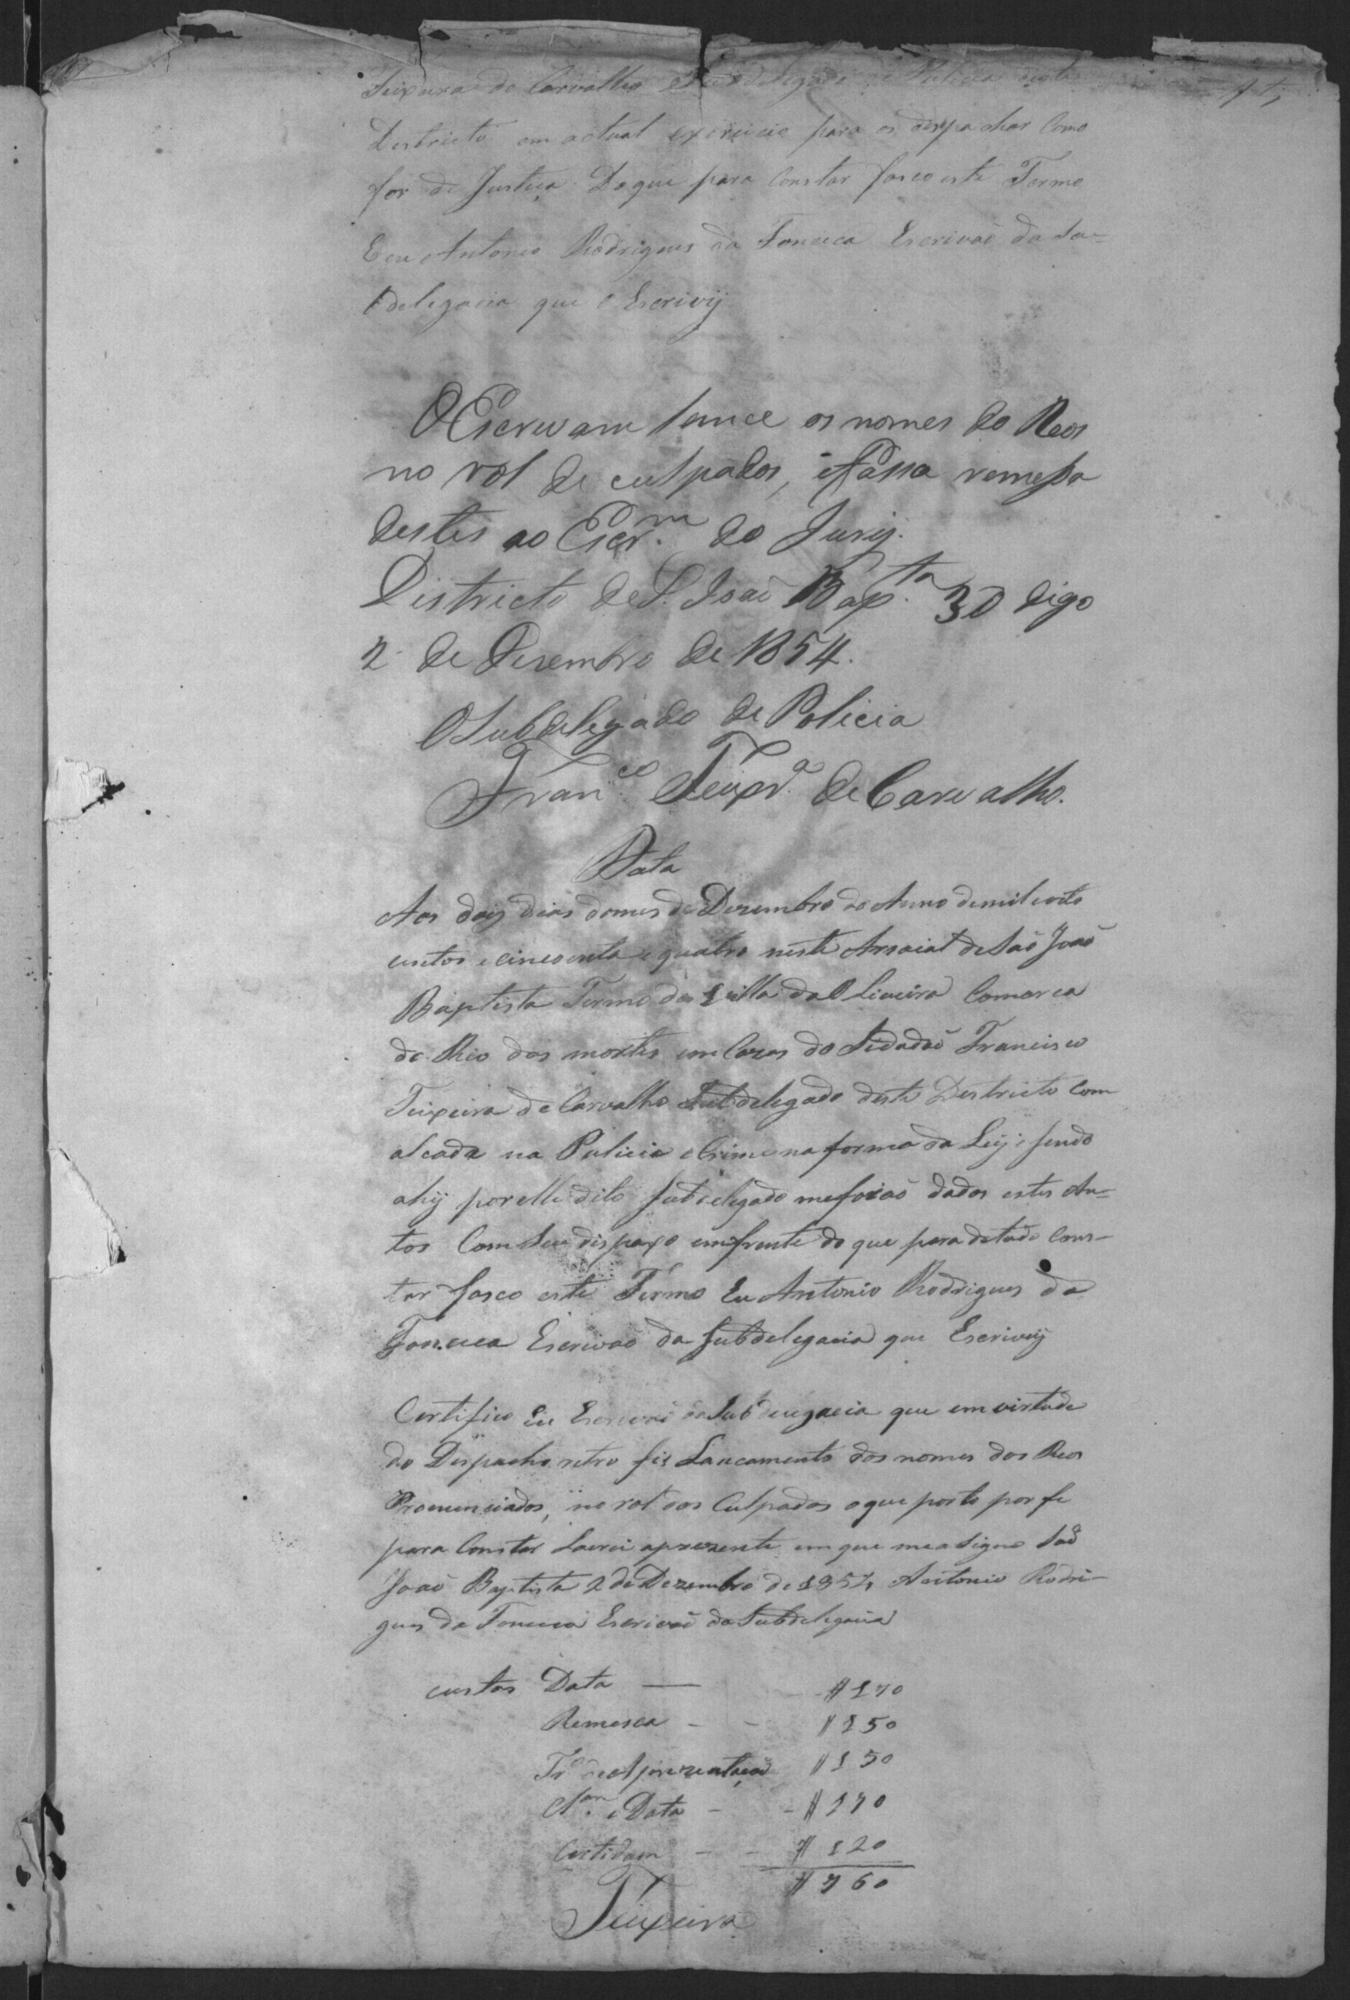 Teixeira de Carvalho Subdelegado de Policia deste
Destricto em actual exercicio para os despachar Como
for de Justiça Do que para Constar fasco este Termo
Eeu Antonio Rodrigues da Fonceca Escrivaõ da Su=
delegacia que o Escrivij
O Escrivam lance os nomes do Reos
no rol de culpados, e fassa remessa
destes ao Escr.m do Jurij.
Districto de S. Joaõ Bap.ta 30 digo
2 de Desembro de 1854.
O Subdelegado de Policia
Fran.co Teixr.a de Carvalho.
Data
Aos dois dias do mes de Dezembro do Anno de mil e oito
centos e cincoenta e quatro neste Arraial de Saõ Joaõ
Baptista Termo da Villa da Oliveira Comarca
do Rio das mortes em Cazas do Sidadaõ Francisco
Teixeira de Carvalho Subdelegado deste Destricto Com
alcada na Policia e Crime na forma da Leij e sendo
ahij por elle dito Subdelegado me foraõ dados estes Au=
tos Com seu dispaxo em frente do que para de tudo Cons-
tar fasco este Termo Eu Antonio Rodrigues da
Fonceca Escrivaõ da Subdelegacia que Escrivij
Certifico eu Escrivaõ da Subdelegacia que em virtude
do Despacho retro fis Lancamento dos nomes dos Reos
Pronunciados, no rol dos Culpados o que porto por fe
para Constar Lavrei a prezente em que me asigno Saõ
Joaõ Baptista 2 de Dezembro de 1854 Antonio Rodri-
gues da Fonceca Escrivaõ da Subdelegacia
custas Data — $170
Remesca - - $150
Tr.o de Aprezentacaõ $150
Cl.am e Data - - $170
Certidam - - $120
$760
Teixeira